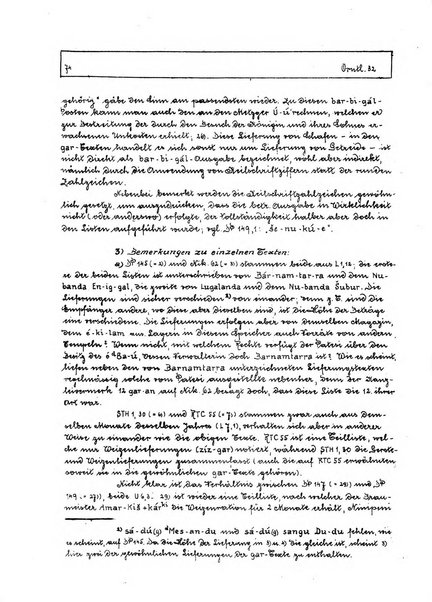 74 Orntl. 32
gehörig" gäbe den Sinn am passendsten wieder. Zu diesen bar-bi-gál-
Posten kann man auch den an den Metzger Ú-ú rechnen, welchen er
zur Bestreitung der durch den Besuch der Königin und ihres Sohnes er-
wachsenen Unkosten erhielt; 28). Diese Lieferung von Schafen - in den
gar-Texten handelt es sich sonst nur um Lieferung von Getreide - ist
nicht direkt als bar-bi-gál-Ausgabe bezeichnet, wohl aber indirekt,
nämlich durch die Anwendung von Keilschriftziffern statt der runden
Zahlzeichen.
Nebenbei bemerkt werden die Keilschriftzahlzeichen gewöhn-
lich gesetzt, um auszudrücken, dass die betr. Ausgabe in Wirklichkeit
nicht (oder anderswo) erfolgte, der Vollständigkeit halber aber doch in
den Listen aufgeführt wurde; vgl. DP 149,1: "še-nu-kú-e".
3) Bemerkungen zu einzelnen Texten:
a) DP 145 (= 2) und Nik. 62 (= 3) stammen beide aus L 1,12; die erste-
re der beiden Listen ist unterschrieben von Bár-nam-tar-ra und dem Nu-
banda En-ig-gal, die zweite von Lugalanda und dem Nu-banda Šubur. Die
Lieferungen sind sicher verschieden 2) von einander, denn z.T. sind die
Empfänger andere, wo dies aber dieselben sind, ist die Höhe der Beträge
eine verschiedene. Die Lieferungen erfolgen aber von demselben Magazin,
dem é-ki-lam aus. Lagern in diesem Speicher auch Vorräte von anderen
Tempeln? Wenn nicht, mit welchem Rechte verfügt der Patesi über den
Besitz des é dBa-ú, dessen Verwalterin doch Barnamtarra ist? Wie es scheint,
liefen neben den von Barnamtarra unterzeichneten Lieferungstexten
regelmässig solche vom Patesi ausgestellte nebenher, denn der Kanz-
leivermerk 12 gar-an auf Nik. 62 besagt doch, dass diese Liste die 12. ihrer
Art war.
STH 1,30 (= 4) und RTC 55 (= 7) stammen zwar auch aus dem-
selben Monate desselben Jahres (L 7,1), verhalten sich aber in anderer
Weise zu einander wie die obigen Texte. RTC 55 ist eine Teilliste, wel-
che nur Weizenlieferungen (zíz-gar) notiert, während STH 1,30 die Gerste-
und Weizenlieferungen zusammenfasst (auch die auf RTC 55 erwähnten
soweit sie in die gewöhnlichen gar-Texte gehören).
Nicht klar ist das Verhältnis zwischen DP 147 (= 28) und DP
149 (= 27), beide U 6,3. 28) ist wieder eine Teilliste, nach welcher der Brau-
meister Amar-Kiš ki die Weizenration für 2 Monate erhält, Nimpeni
2) sá-dú(g) dMes-an-du und sá-dú(g) sangu Du-du fehlen, wie
es scheint, auf DP 145. Da die Höhe der Lieferung in 3) u. 4) die gleiche ist, scheint 3)
hier zwei der gewöhnlichen Lieferungen der gar-Texte zu enthalten.